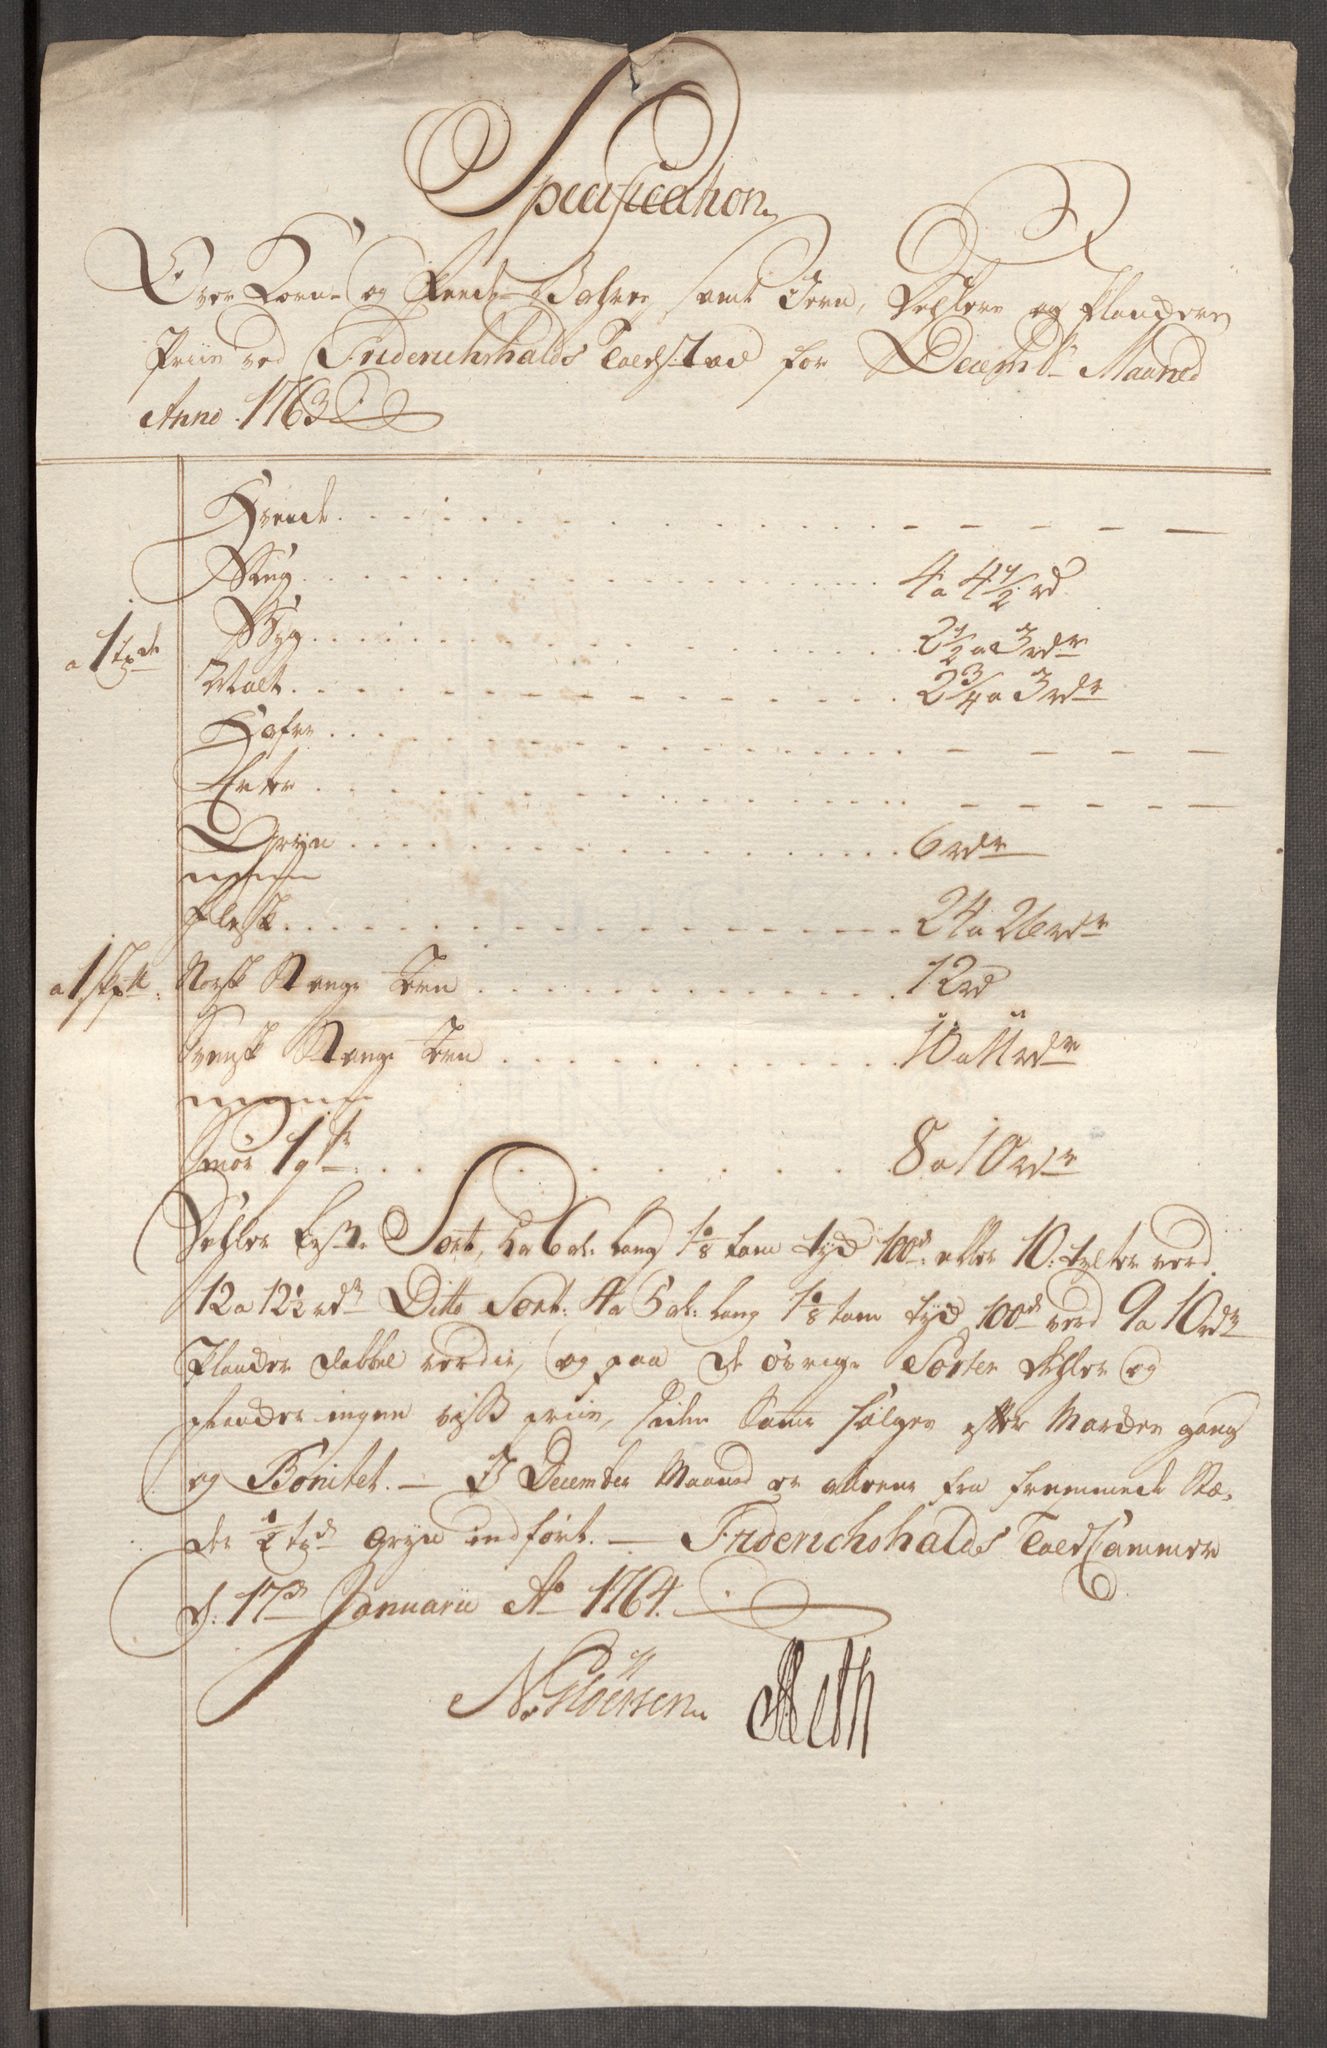 Specification
Over Korn- og Feede-Vahre, samt Jern, Dehlers og Planckers
Priis ved Friderichshalds Toldsted for Decembr Maaned
Anno 1763
Hvede
Rug 4 a 4 1/2 rd
a 1 tønde Byg 2 1/2 a 3 rdr
Malt 2 3/4 a 3 rdr
Hafre
Erter
Gryn 6 rdr
Flesk 24 a 26 rdr
a 1 skp℔: Norsk Stange Jern 12 rd
Svensk Stange Jern 10 a 11 rdr
Smør 1 8 a 10 rdr
Dehler beste Sort, 5 a 6 al: lang 1 1/8 tom tyk 100d: eller 10: tylter verd
12 a 12 1/2 rdr Ditto Sort: 4 a 5 al: lang 1 1/8 tom tyk 100d verd 9 a 10 rdr
Plancker dobbel verdie, og paa de øvrige Sorter Dehler og
plancker ingen viss priis, siden Samme sælges efter Markens gang
og Bonitet. — I December Maaned er alleene fra fremmede Stæ-
der 1/2 tød Gryn indført. — Friderichshalds Toldkammer
d: 17de Januarii Ao 1764.